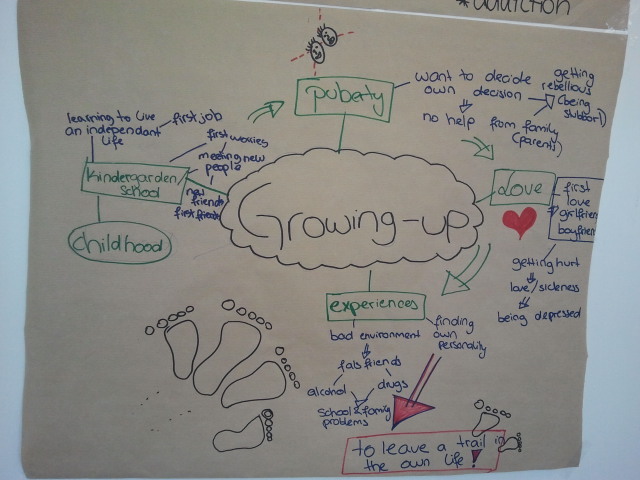 *addiction
puberty
want to decide
own decision
getting
rebellious
(being
stubborn)
no help from family
(parents)
learning to live
an independant
life
first job
first worries
meeting new
people
new
friends
first friends
kindergarden
school
childhood
Growing-up
Love
first
love
girlfriend
boyfriend
getting hurt
love/sickness
being depressed
experiences
bad environment
fals friends
alcohol
drugs
school & family
problems
finding
own
personality
to leave a trail in
the own life!